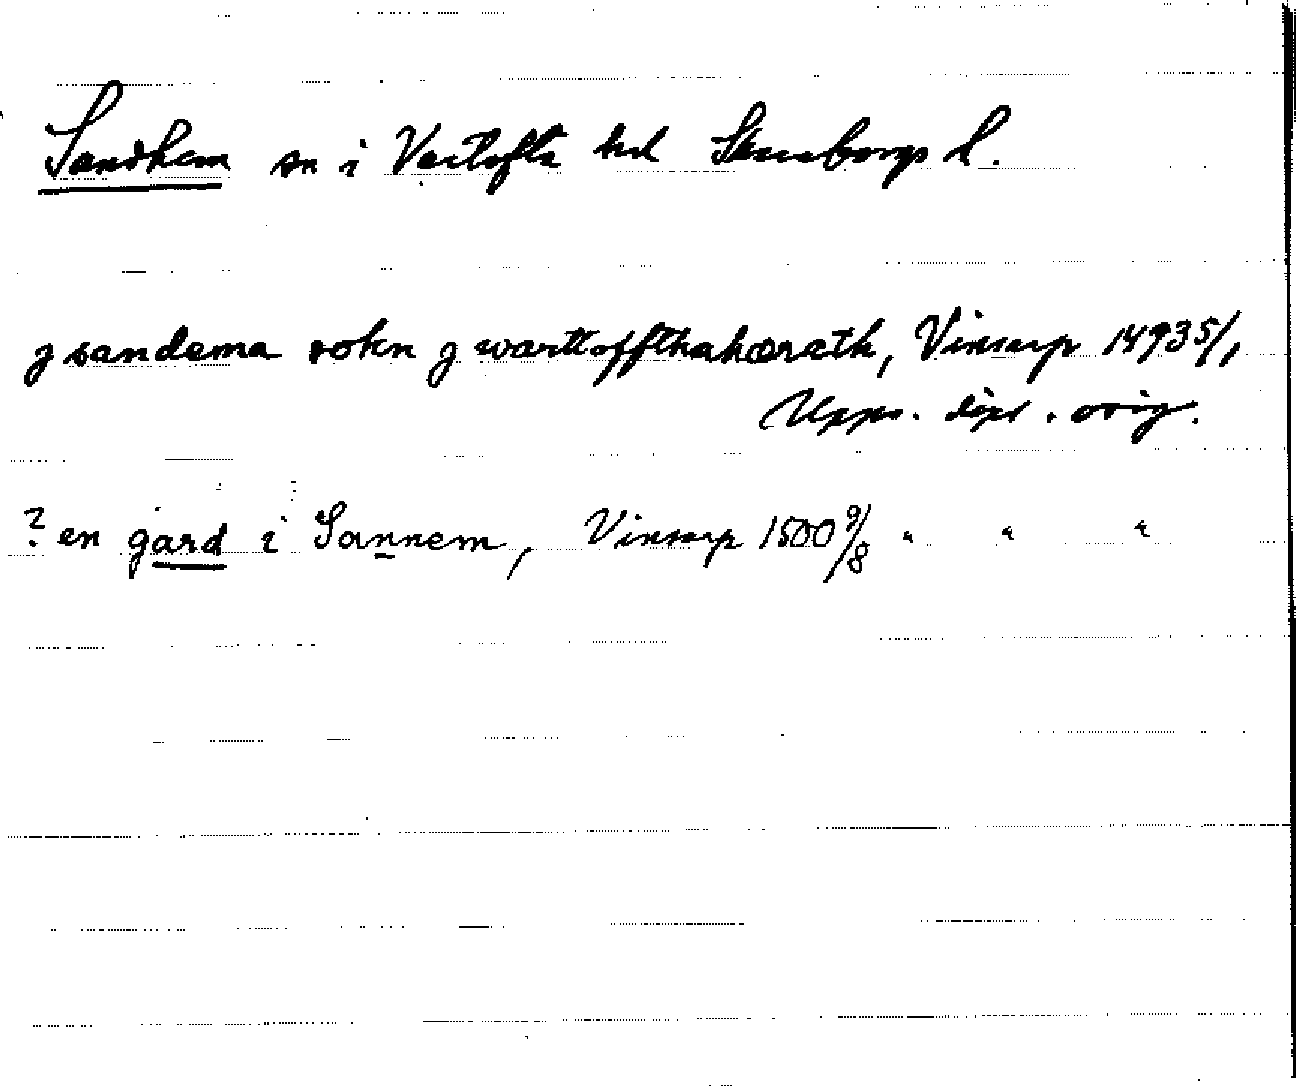 Sandhem sn i Vartofta hd Skaraborgs l.
j sandema sokn j warttoffthahæræth, Vinsarp 1493 5/1
Upps. dipl. orig.
? en gard i Sannem, Vinsarp 1500 9/8 " " "